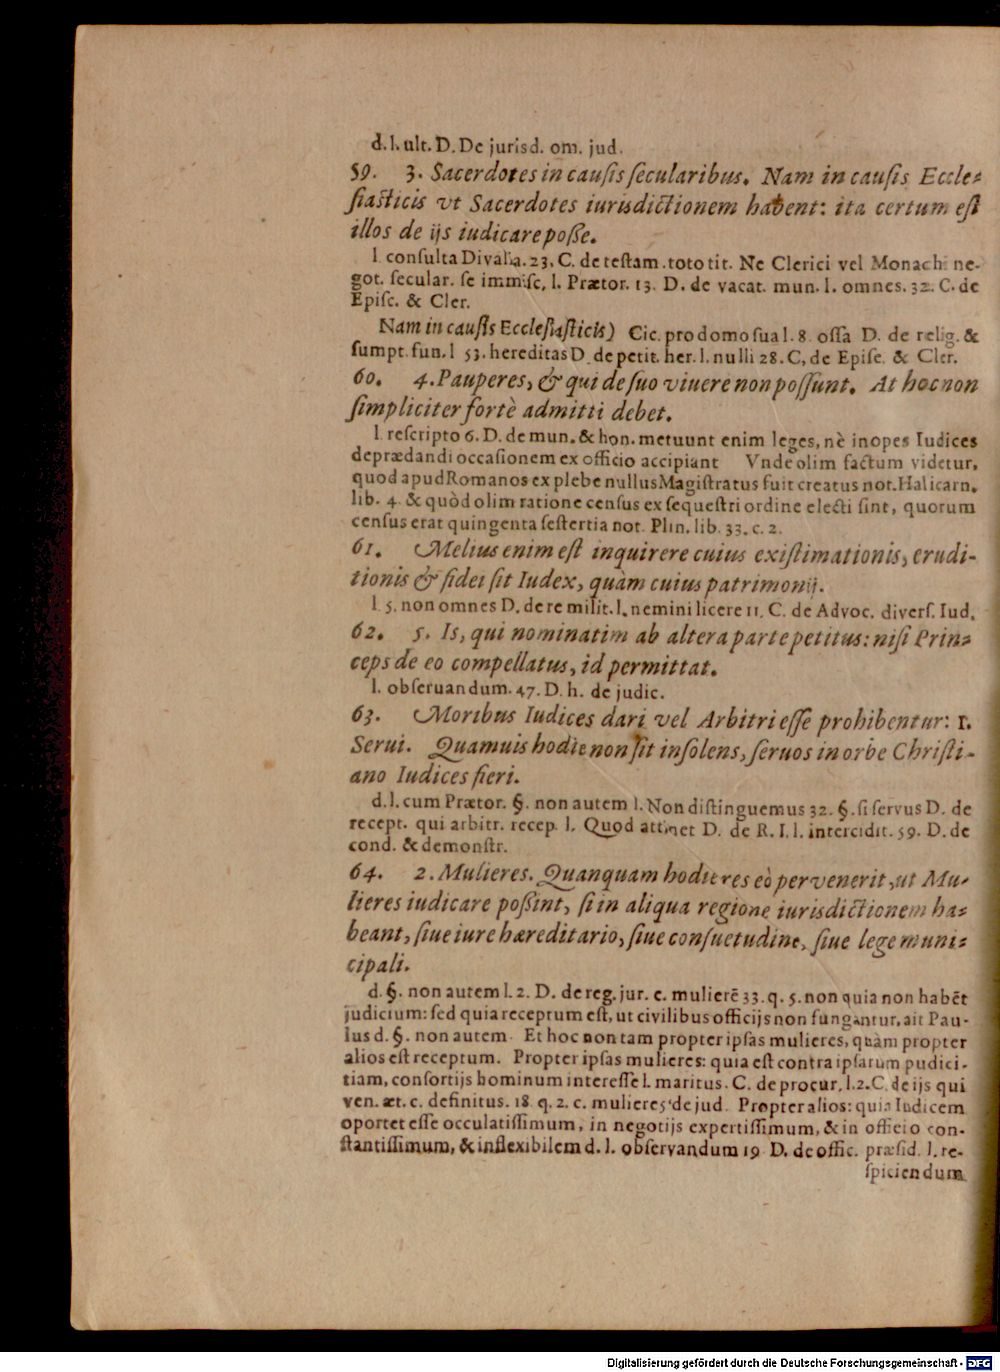 d. l. ult. D. De jurisd. om. jud.
59. 3. Sacerdotes in cauſis ſecularibus. Nam in cauſis Eccle-
ſiaſticis vt Sacerdotes iurisdictionem habent: ita certum eſt
illos de ijs iudicare poſſe.
l. conſulta Divalia. 23. C. de teſtam. toto tit. Ne Clerici vel Monachi ne-
got. ſecular. ſe immiſc. l. Prætor. 13. D. de vacat. mun. l. omnes. 32. C. de
Epiſc. & Cler.
Nam in cauſis Eccleſiaſticis) Cic. pro domo ſua l. 8. oſſa D. de relig. &
ſumpt. fun. l 53. hereditas D. de petit. her. l. nulli 28. C, de Epiſc. & Cler.
60. 4. Pauperes, & qui de ſuo viuere non poſſunt. At hoc non
ſimpliciter fortè admitti debet.
l. reſcripto 6. D. de mun. & hon. metuunt enim leges, nè inopes Iudices
deprædandi occaſionem ex officio accipiant Vnde olim factum videtur,
quod apud Romanos ex plebe nullus Magiſtratus fuit creatus not. Halicarn.
lib. 4. & quòd olim ratione cenſus ex ſequeſtri ordine electi ſint, quorum
cenſus erat quingenta ſeſtertia not. Plin. lib. 33. c. 2.
61. Melius enim eſt inquirere cuius exiſtimationis, erudi-
tionis & fidei ſit Iudex, quàm cuius patrimonij.
l. 5. non omnes D. de re milit. l. nemini licere 11. C. de Advoc. diverſ. Iud.
62. 5. Is, qui nominatim ab altera parte petitus: niſi Prin-
ceps de eo compellatus, id permittat.
l. obſeruandum. 47. D. h. de judic.
63. Moribus Iudices dari vel Arbitri eſſe prohibentur: 1.
Serui. Quamuis hodie non ſit inſolens, ſeruos in orbe Chriſti-
ano Iudices fieri.
d. l. cum Prætor. §. non autem l. Non diſtinguemus 32. §. ſi ſervus D. de
recept. qui arbitr. recep. l. Quod attinet D. de R. I. l. intercidit. 59. D. de
cond. & demonſtr.
64. 2. Mulieres. Quanquam hodie res eò pervenerit, ut Mu-
lieres iudicare poſſint, ſi in aliqua regione iurisdictionem ha-
beant, ſiue iure hæreditario, ſiue conſuetudine, ſiue lege muni-
cipali.
d. §. non autem l. 2. D. de reg. jur. c. mulierē 33. q. 5. non quia non habēt
judicium: ſed quia receptum eſt, ut civilibus officijs non fungantur, ait Pau-
lus d. §. non autem. Et hoc non tam propter ipſas mulieres, quàm propter
alios eſt receptum. Propter ipſas mulieres: quia eſt contra ipſarum pudici-
tiam, conſortijs hominum intereſſe l. maritus. C. de procur. l. 2. C. de ijs qui
ven. æt. c. definitus. 18. q. 2. c. mulieres de jud. Propter alios: quia Iudicem
oportet eſſe occulatiſſimum, in negotijs expertiſſimum, & in officio con-
ſtantiſſimum, & inflexibilem d. l. obſervandum 19 D. de offic. præſid. l. re-
ſpiciendum
Digitalisierung gefördert durch die Deutsche Forschungsgemeinschaft - DFG